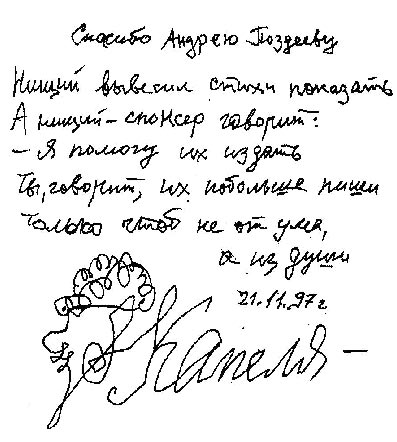 Спасибо Андрею Поздееву
Нищий вывесил стихи показать
А нищий – спонсер говорит:
– Я помогу их издать
Ты, говорит, их побольше пиши
Только чтоб не от ума,
а из души
21.11.97 г
Капеля